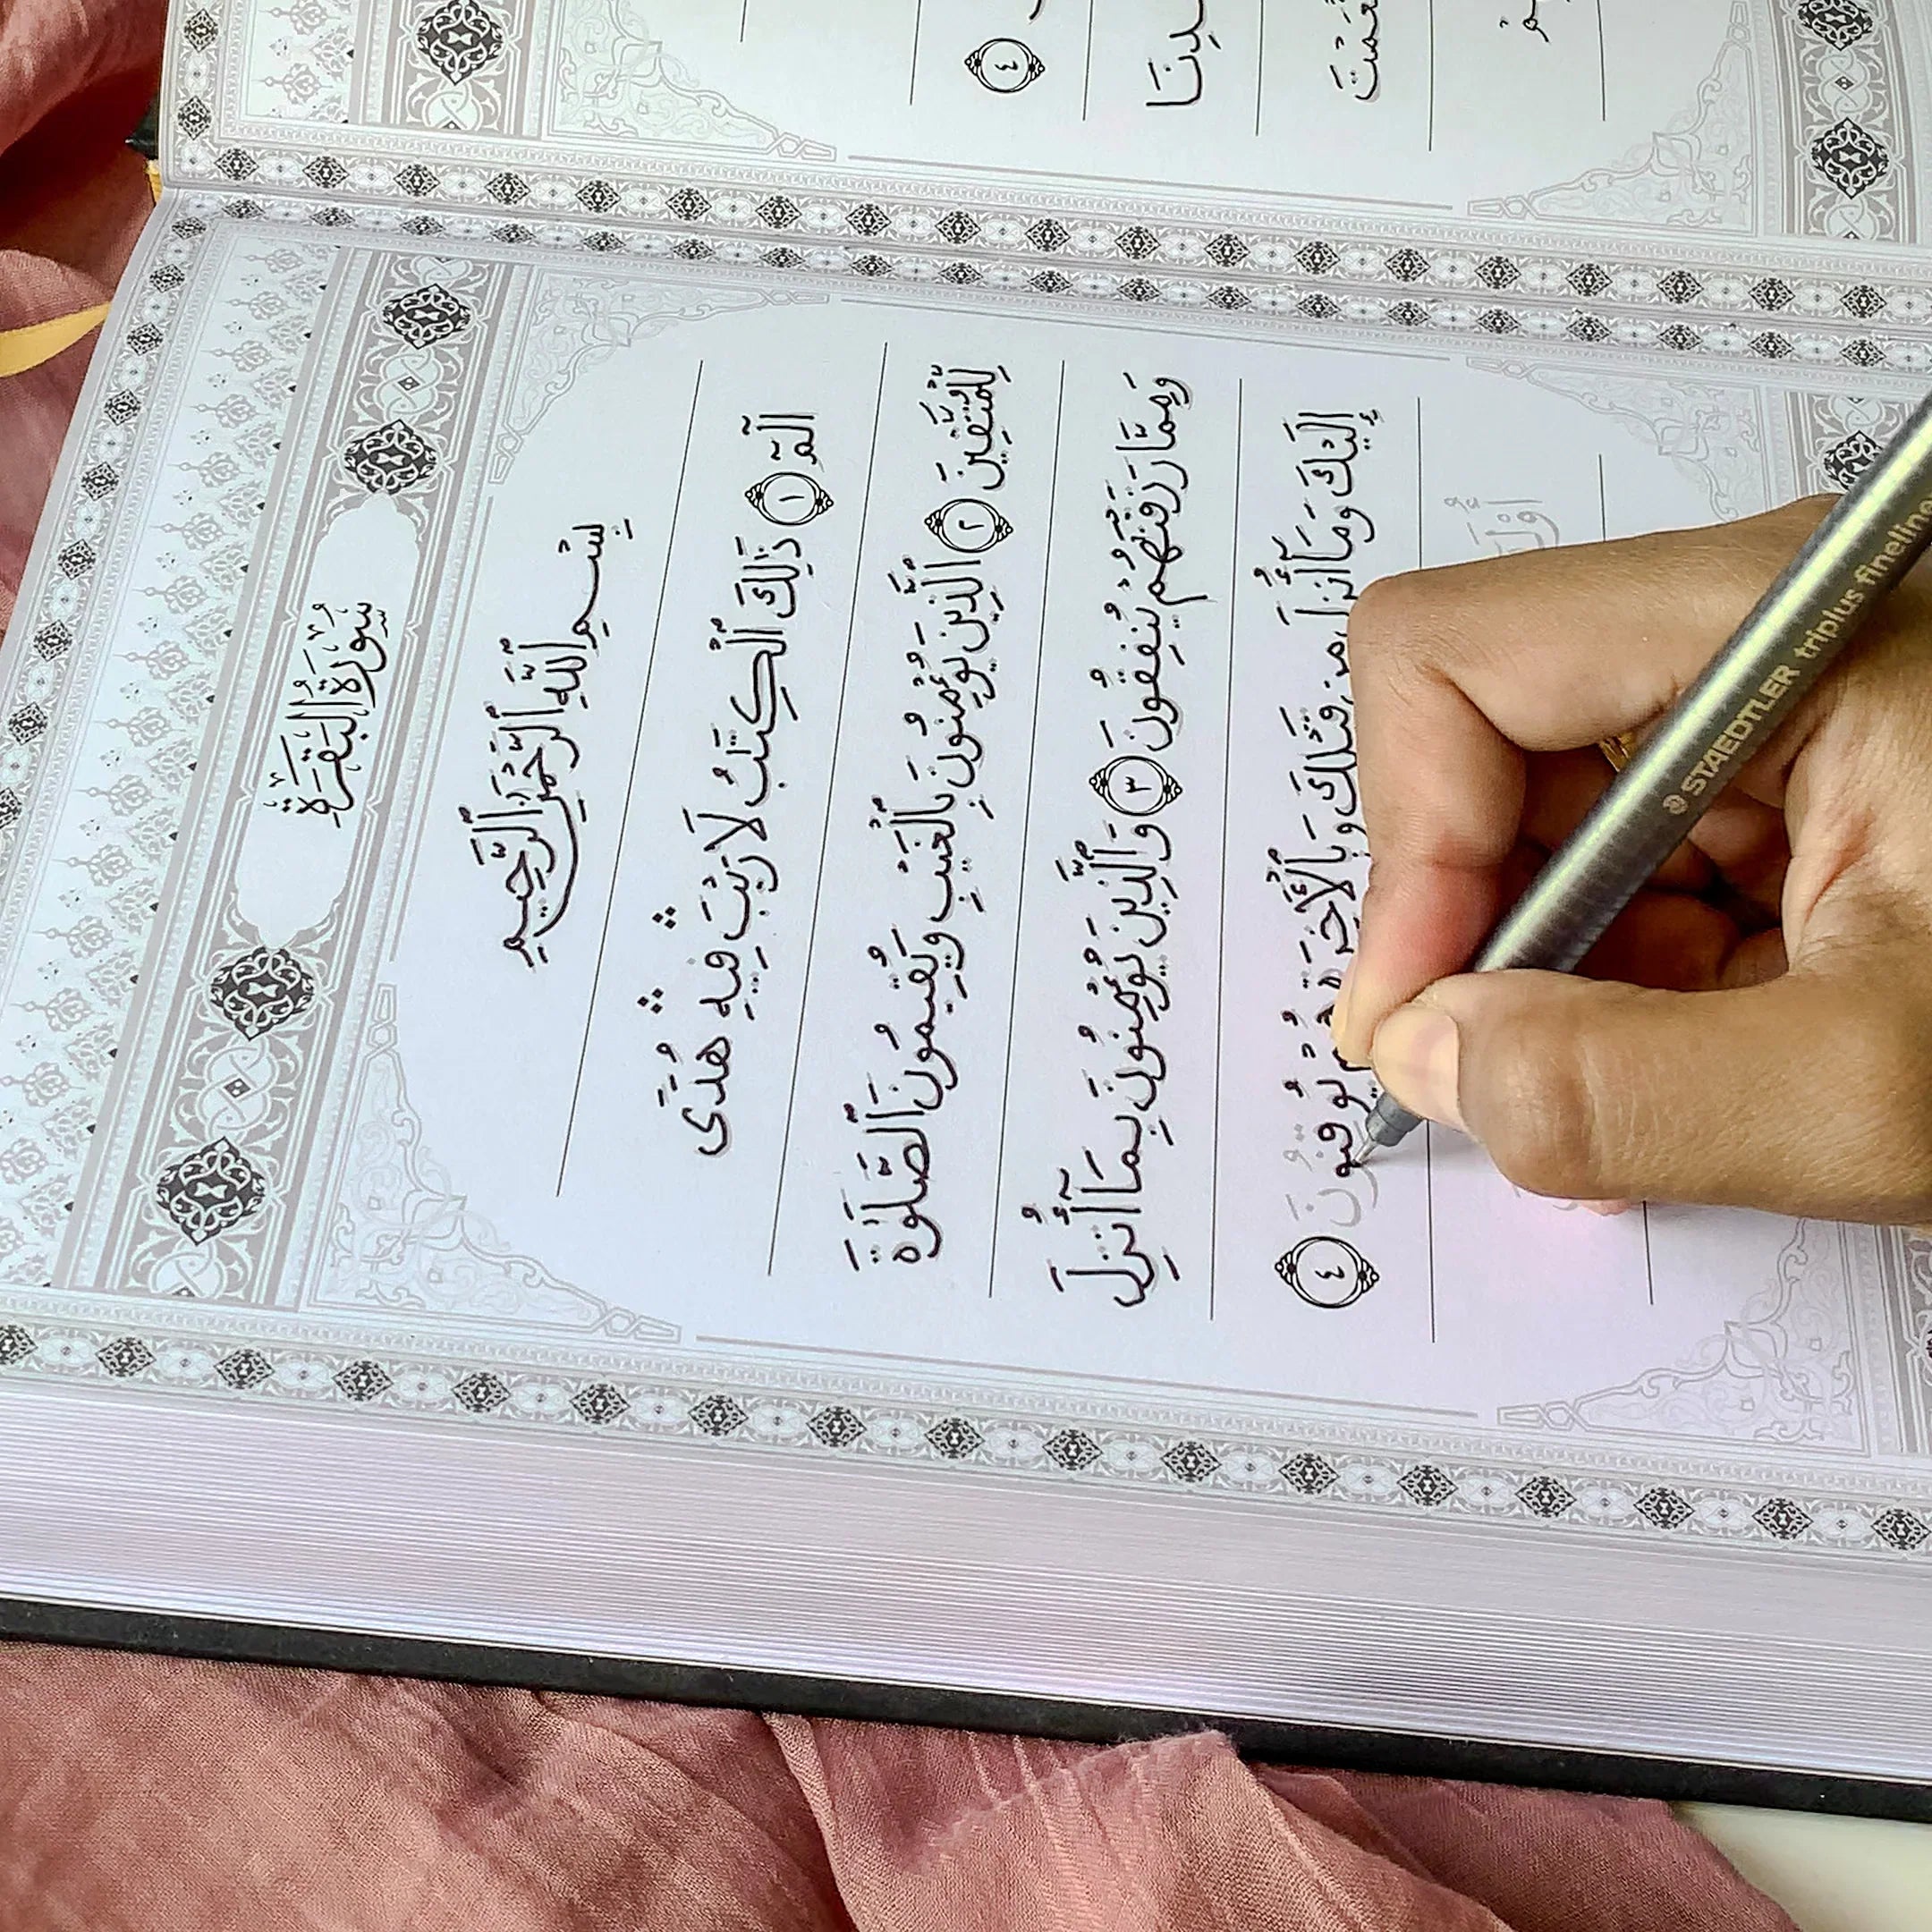 سُورَةُ الْبَقَرَةِ
بِسْمِ اللَّهِ الرَّحْمَٰنِ الرَّحِيمِ
الٓمٓ ١ ذَٰلِكَ ٱلْكِتَٰبُ لَا رَيْبَ ۛ فِيهِ ۛ هُدًى
لِّلْمُتَّقِينَ ٢ ٱلَّذِينَ يُؤْمِنُونَ بِٱلْغَيْبِ وَيُقِيمُونَ ٱلصَّلَوٰةَ
وَمِمَّا رَزَقْنَٰهُمْ يُنفِقُونَ ٣ وَٱلَّذِينَ يُؤْمِنُونَ بِمَآ أُنزِلَ
إِلَيْكَ وَمَآ أُنزِلَ مِن قَبْلِكَ وَبِٱلْأَخِرَةِ هُمْ يُوقِنُونَ ٤
٤
STAEDTLER triplus fineliner